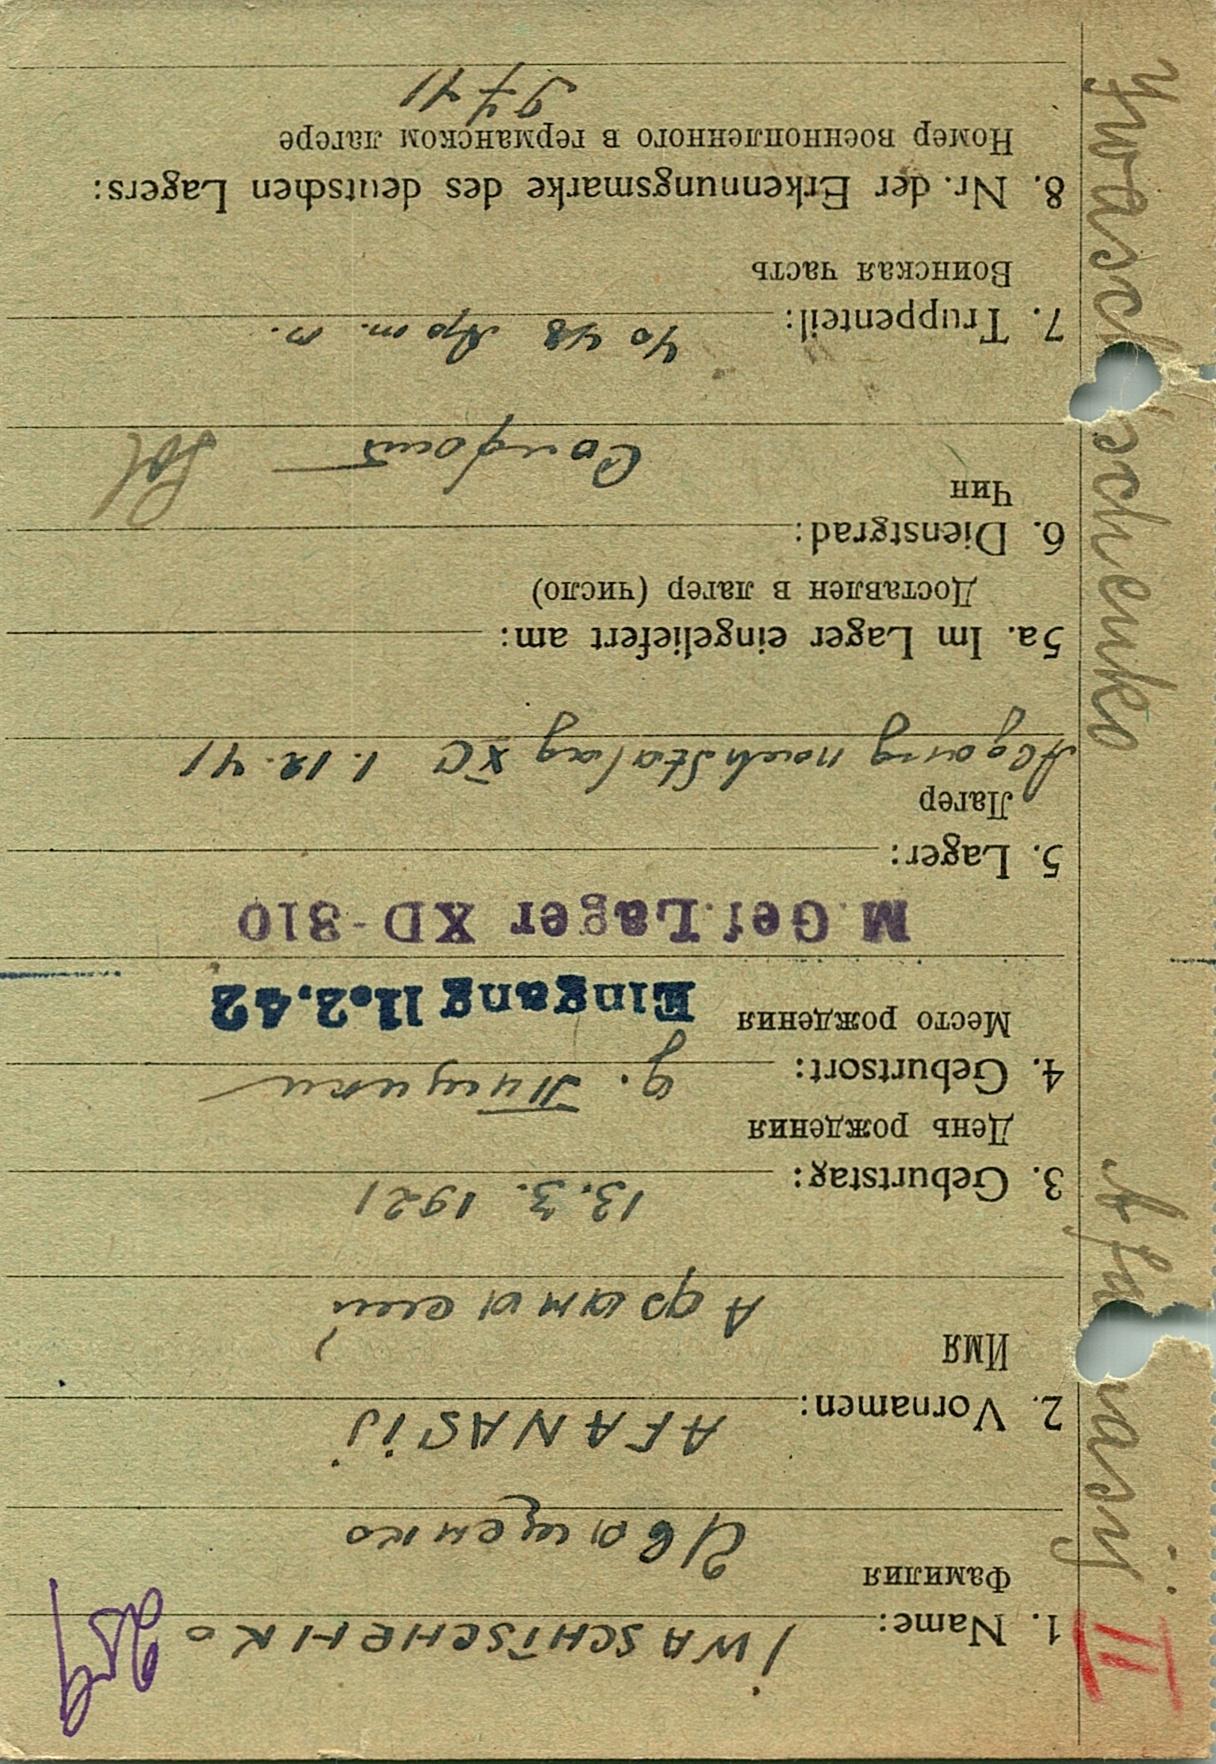 II
1. Name: IWASCHTSCHENKO
Фамилия Иващенко
2. Vornamen: AFANASIJ
Имя Афанасий
3. Geburtstag: 13.3.1921
День рождения
4. Geburtsort:
Место рождения
Eingang 11.2.42
M.Gef.Lager XD-310
5. Lager:
Лагер
Abgang nach Stalag XC 1.12.41
5a. Im Lager eingeliefert am:
Доставлен в лагер (число)
6. Dienstgrad:
Чин Солдат Sol
7. Truppenteil:
Воинская часть
8. Nr. der Erkennungsmarke des deutschen Lagers:
Номер военнопленного в германском лагере
9711
Iwaschtschenko Afanasij